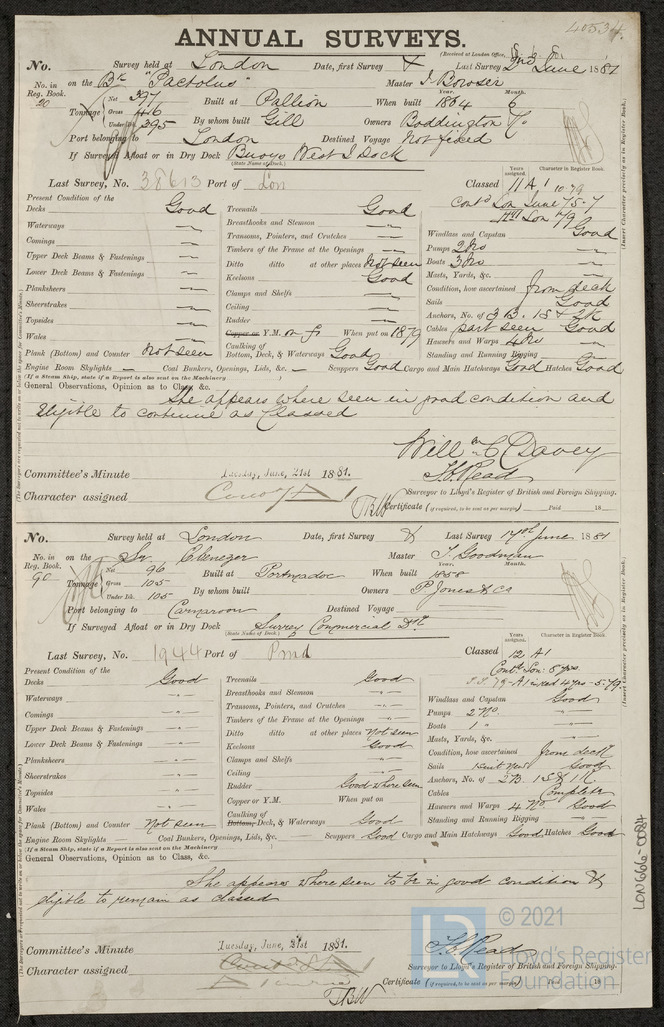 40534
ANNUAL SURVEYS.
(Received at London Office,
No. Survey held at London Date, first Survey Last Survey 2nd June 1881
No. in Reg. Book. 20 on the Bk "Pactolus" Master J. Bowser
Tonnage Net 397 Gross 416 Under Dk. 395
Built at Pallion When built Year. 1864 Month. 6
By whom built Gill Owners Boddington & Co
Port belonging to London Destined Voyage Not fixed
If Surveyed Afloat or in Dry Dock Buoys West I Dock
(State Name of Dock.)
Last Survey, No. 38613 Port of Lon
Years assigned. Character in Register Book.
Classed 11 A 1 10.79
Contd Lon June 75-7
(Insert Character precisely as in Register Book.)
Present Condition of the
Decks Good
Waterways "
Comings "
Upper Deck Beams & Fastenings "
Lower Deck Beams & Fastenings "
Planksheers "
Sheerstrakes "
Topsides "
Wales "
Plank (Bottom) and Counter Not seen
Treenails Good
Breasthooks and Stemson "
Transoms, Pointers, and Crutches "
Timbers of the Frame at the Openings "
Ditto ditto at other places Not seen
Keelsons Good
Clamps and Shelfs "
Ceiling "
Rudder "
Copper or Y.M. on fr When put on 1879
Caulking of Bottom, Deck, & Waterways Good
Windlass and Capstan Good
Pumps 2 No "
Boats 3 No "
Masts, Yards, &c. "
Condition, how ascertained from deck
Sails Good
Anchors, No. of 3 B. 1S & 2K "
Cables part seen Good
Hawsers and Warps 4 No "
Standing and Running Rigging "
Engine Room Skylights — Coal Bunkers, Openings, Lids, &c. — Scuppers Good Cargo and Main Hatchways Good Hatches Good
(If a Steam Ship, state if a Report is also sent on the Machinery )
General Observations, Opinion as to Class, &c.
She appears where seen in good condition and
eligible to continue as Classed
Willm C Davey
T.C. Read
Committee's Minute Tuesday, June, 21st 1881.
Surveyor to Lloyd's Register of British and Foreign Shipping.
Character assigned
TBW
Certificate (if required, to be sent as per margin) Paid 18
No. Survey held at London Date, first Survey Last Survey 17th June 1881
No. in Reg. Book. 90 on the Sr Ebenezer Master J. Goodman
Tonnage Net 96 Gross 105 Under Dk. 105
Built at Portmadoc When built Year. 1858 Month.
By whom built Owners P Jones & Co
Port belonging to Carnarvon Destined Voyage
If Surveyed Afloat or in Dry Dock Surrey Commercial Dk
(State Name of Dock.)
Last Survey, No. 1944 Port of Pmd
Years assigned. Character in Register Book.
Classed 12 A1
Contd Lon: 8 yrs
(Insert Character precisely as in Register Book.)
Present Condition of the
Decks Good
Waterways "
Comings "
Upper Deck Beams & Fastenings "
Lower Deck Beams & Fastenings "
Planksheers "
Sheerstrakes "
Topsides "
Wales "
Plank (Bottom) and Counter Not seen
Treenails Good
Breasthooks and Stemson "
Transoms, Pointers, and Crutches "
Timbers of the Frame at the Openings "
Ditto ditto at other places Not seen
Keelsons Good
Clamps and Shelfs "
Ceiling "
Rudder Good where seen
Copper or Y.M. When put on
Caulking of Bottom, Deck, & Waterways Good
Windlass and Capstan Good
Pumps 2 No. "
Boats 1 "
Masts, Yards, &c. "
Condition, how ascertained from deck
Sails Good
Anchors, No. of 2B. 1S & 1K. "
Cables Complete
Hawsers and Warps 4 No. Good
Standing and Running Rigging "
Engine Room Skylights — Coal Bunkers, Openings, Lids, &c. — Scuppers Good Cargo and Main Hatchways Good Hatches Good
(If a Steam Ship, state if a Report is also sent on the Machinery )
General Observations, Opinion as to Class, &c.
She appears where seen to be in good condition &
eligible to remain as classed
LON666-0084
© 2021
Lloyd's Register
Foundation
Committee's Minute Tuesday, June, 21st 1881.
T.C. Read
Surveyor to Lloyd's Register of British and Foreign Shipping.
Character assigned
Certificate (if required, to be sent as per margin) Paid 18
TBW